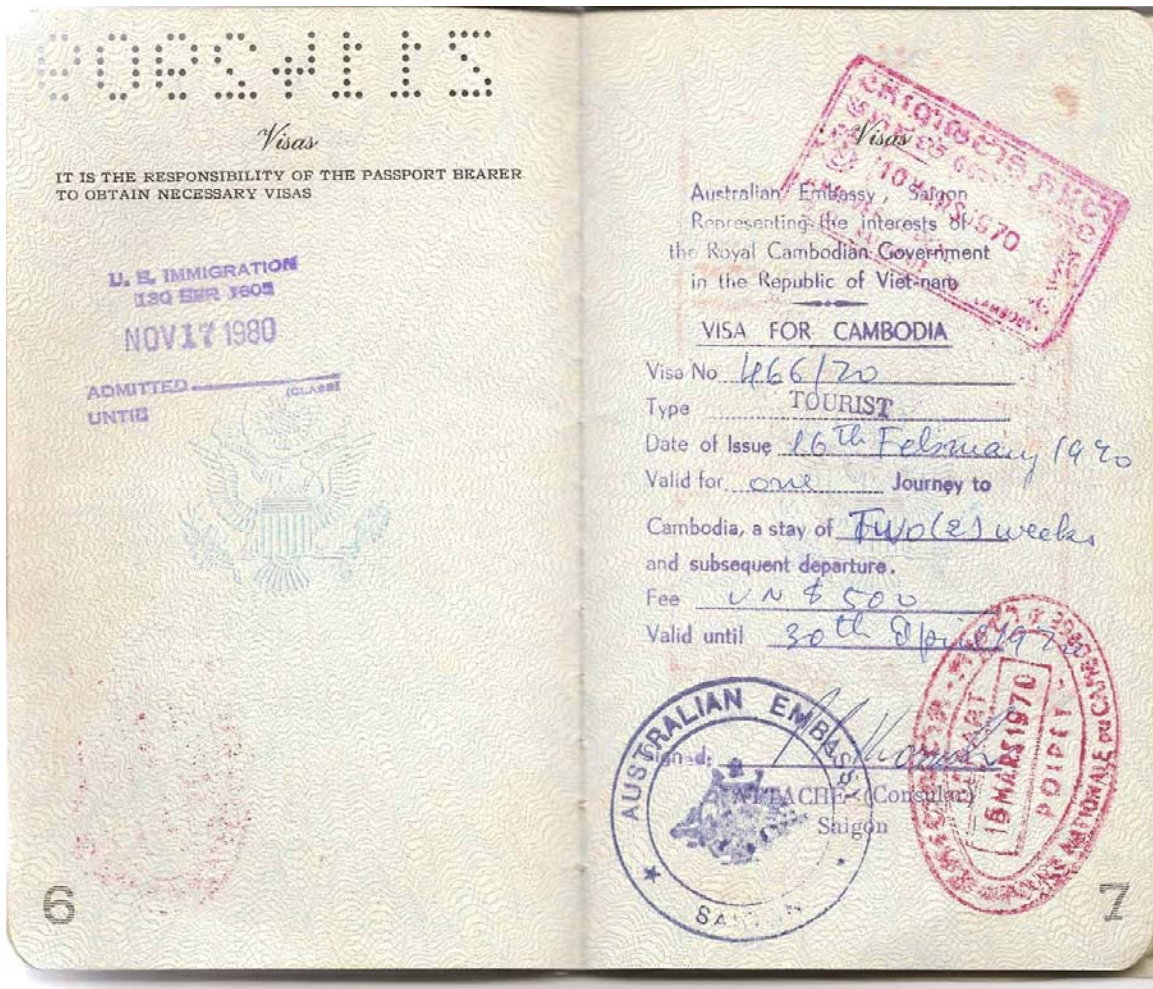 Visas
IT IS THE RESPONSIBILITY OF THE PASSPORT BEARER
TO OBTAIN NECESSARY VISAS
U. S. IMMIGRATION
NOV 17 1980
ADMITTED
(CLASS)
UNTIL
6
Visas
10 MARS 1970
Australian Embassy, Saigon
Representing the interests of
the Royal Cambodian Government
in the Republic of Viet-nam
VISA FOR CAMBODIA
Visa No 466/70
Type TOURIST
Date of Issue 16th February 1970
Valid for one Journey to
Cambodia, a stay of Two (2) weeks
and subsequent departure.
Fee VN $ 500
Valid until 30th April 1970
AUSTRALIAN EMBASSY
SAIGON
Signed:
ATTACHE (Consular)
Saigon
DEPART
16 MARS 1970
POIPET
POLICE NATIONALE DU CAMBODGE
7